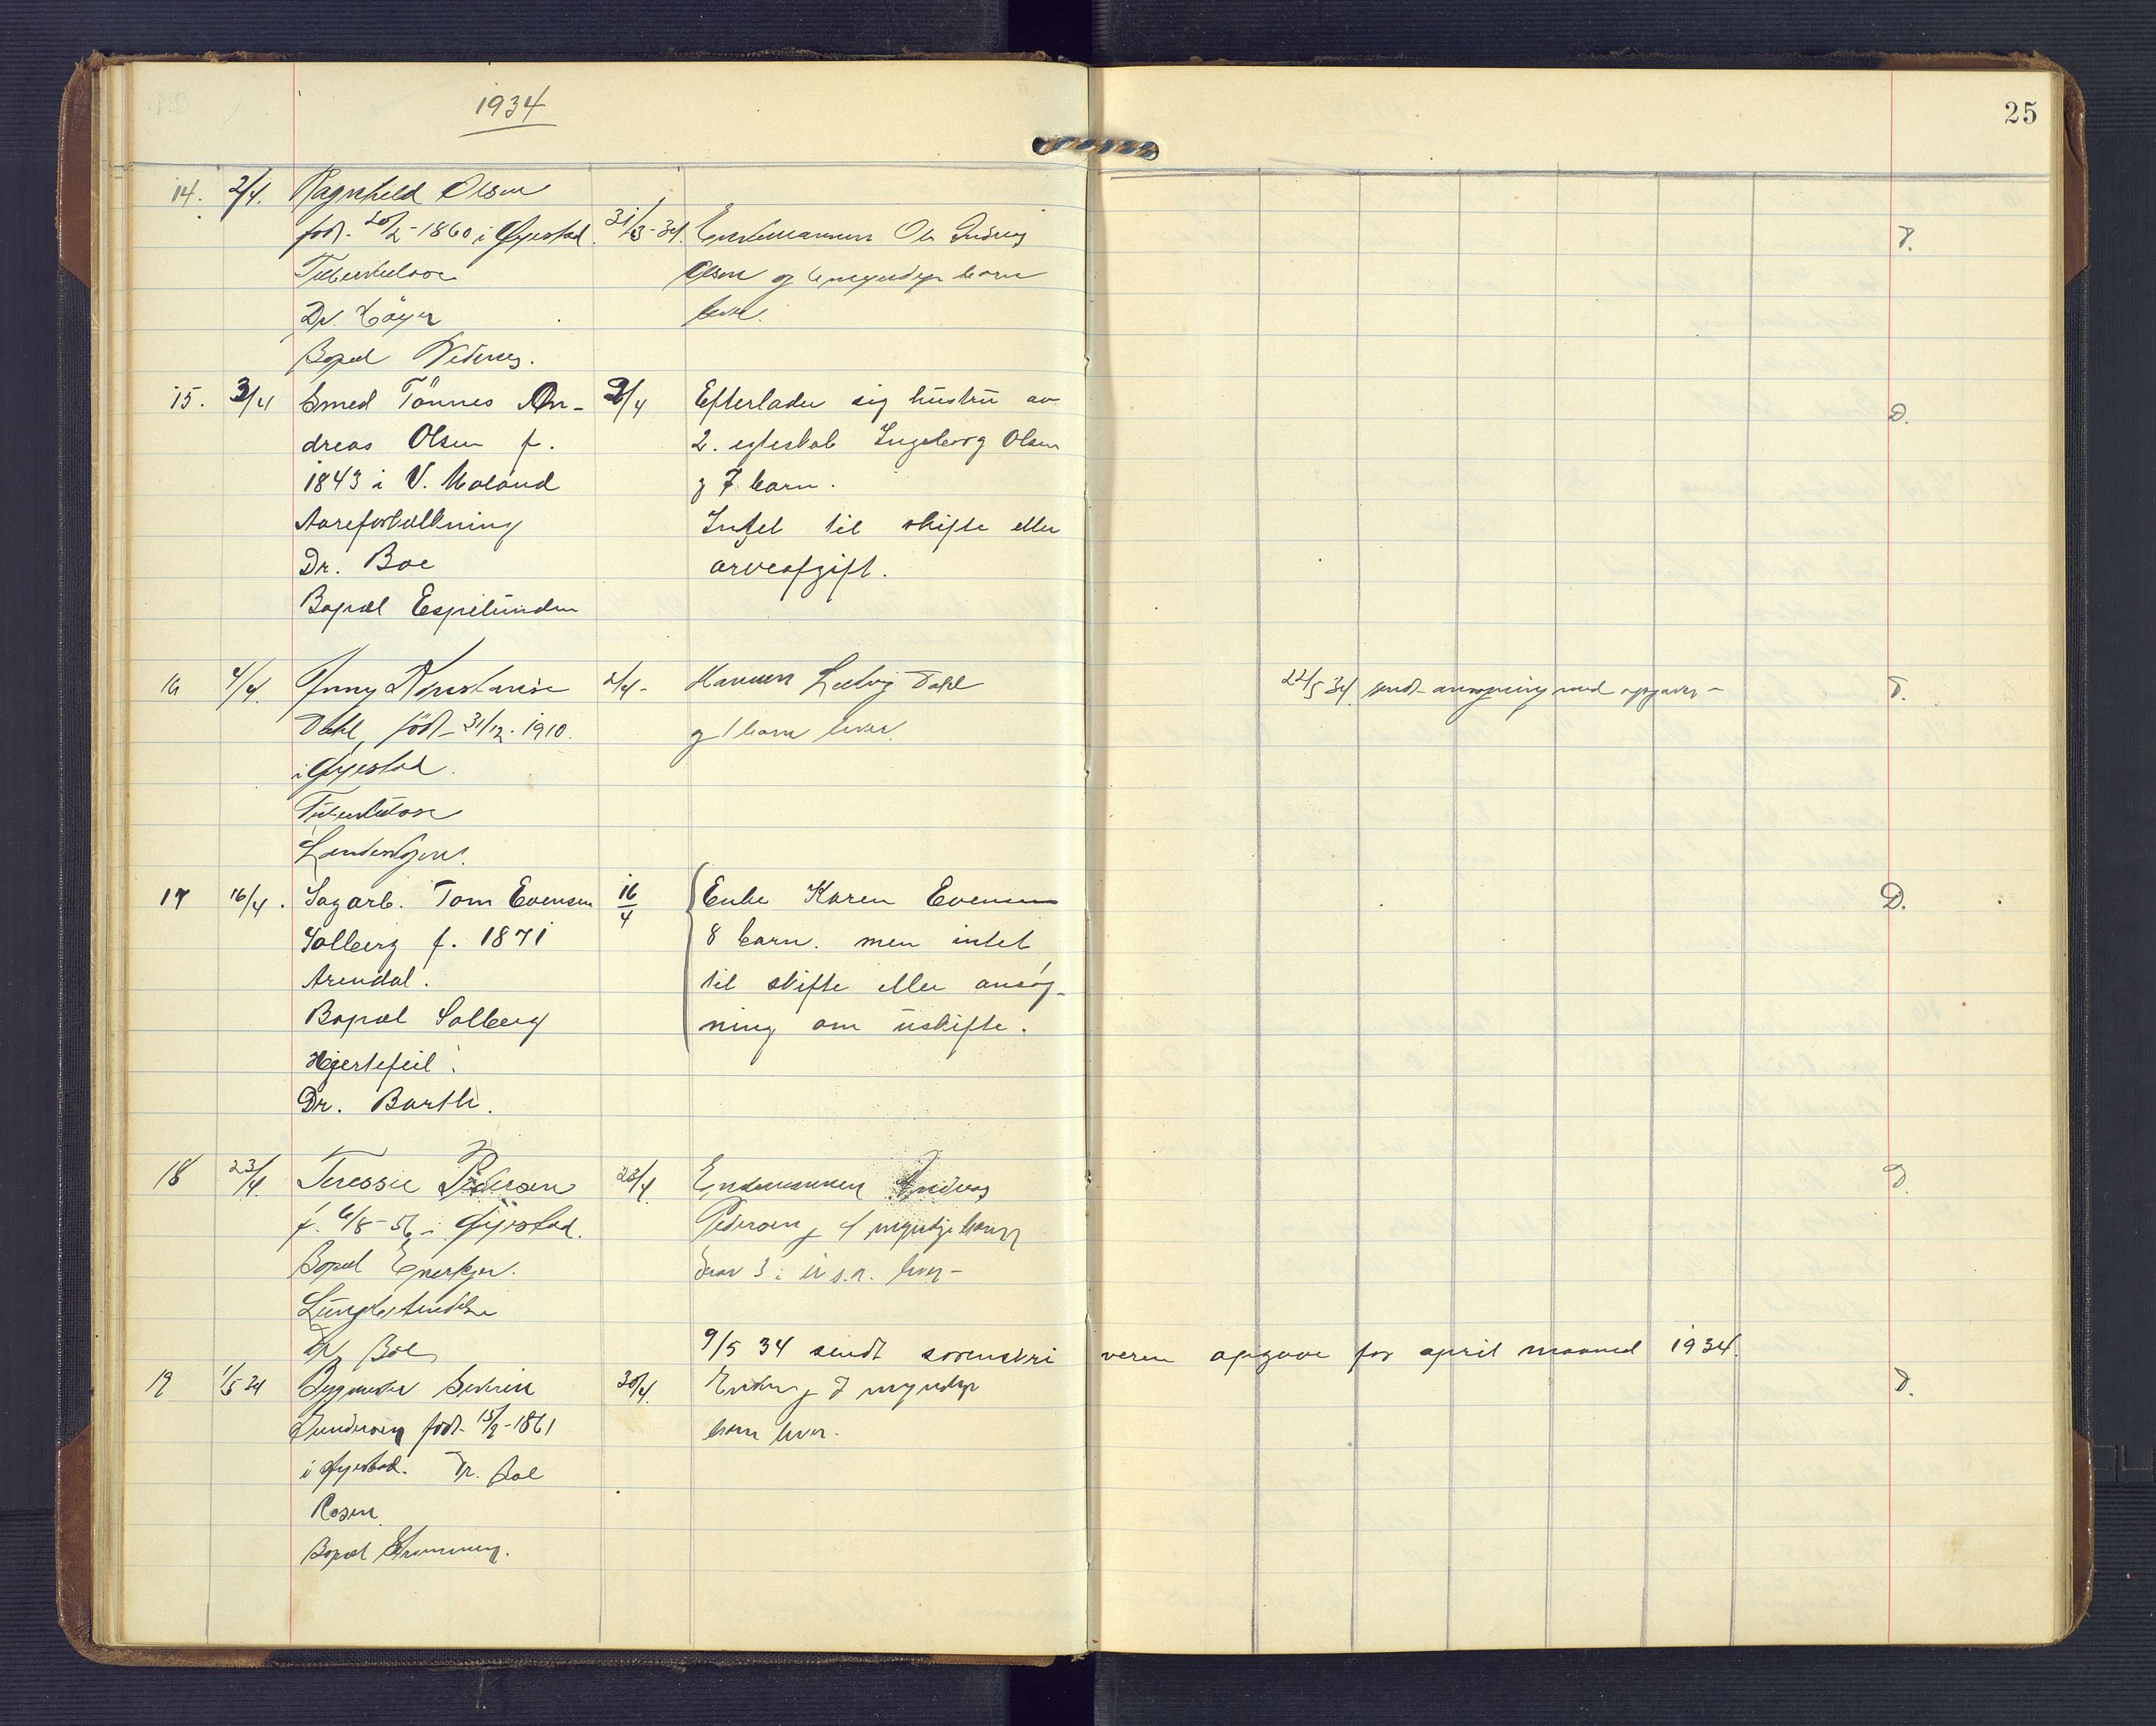 1934
25
14. 2/4. Ragnhild Olsen
født 20/2-1860 i Øyestad. 31/3-34. Enkemannen Ole Andreas D.
Tuberkulose Olsen og 6 myndige barn
Dr. Høyer lever.
Bopæl Nedenes.
15. 3/4 Smed Tönnes An- 2/4 Efterlader sig hustru av D.
dreas Olsen f. 2. egteskab Ingeborg Olsen
1843 i V. Moland og 7 barn.
Aareforkalkning Intet til skifte eller
Dr. Boe arveafgift.
Bopæl Espelunden
16 4/4. Anny Konstanse 2/4- Mannen Ludvig Dahl 22/5 34 sendt ansøgning med opgaver - D.
Dahl, född 31/12-1910. og 1 barn lever.
i Øyestad.
Tuberkulose
17 16/4. Sagarb. Tom Evensen 16/4 Enke Karen Evensen D.
Solberg f. 1871 8 barn. men intet
Arendal. til skifte eller ansøg-
Bopæl Solberg ning om uskifte.
Hjertefeil.
Dr. Barth.
18 23/4. Teressie Pedersen 23/4 Enkemannen Andreas D.
f. 6/8-56 i Øyestad. Pedersen og 4 myndige barn
Bopæl hvorav 3 i U.S.A. lever-
Lungebetendelse
Dr. Boe
9/5 34 sendt sorenskriveren opgave for april maaned 1934.
19 1/5 34 Bygmester Severin 30/4. Enken og 7 myndige D.
Gundersen født 15/2-1861 barn lever.
i Øyestad. Dr. Boe
Rosen
Bopæl